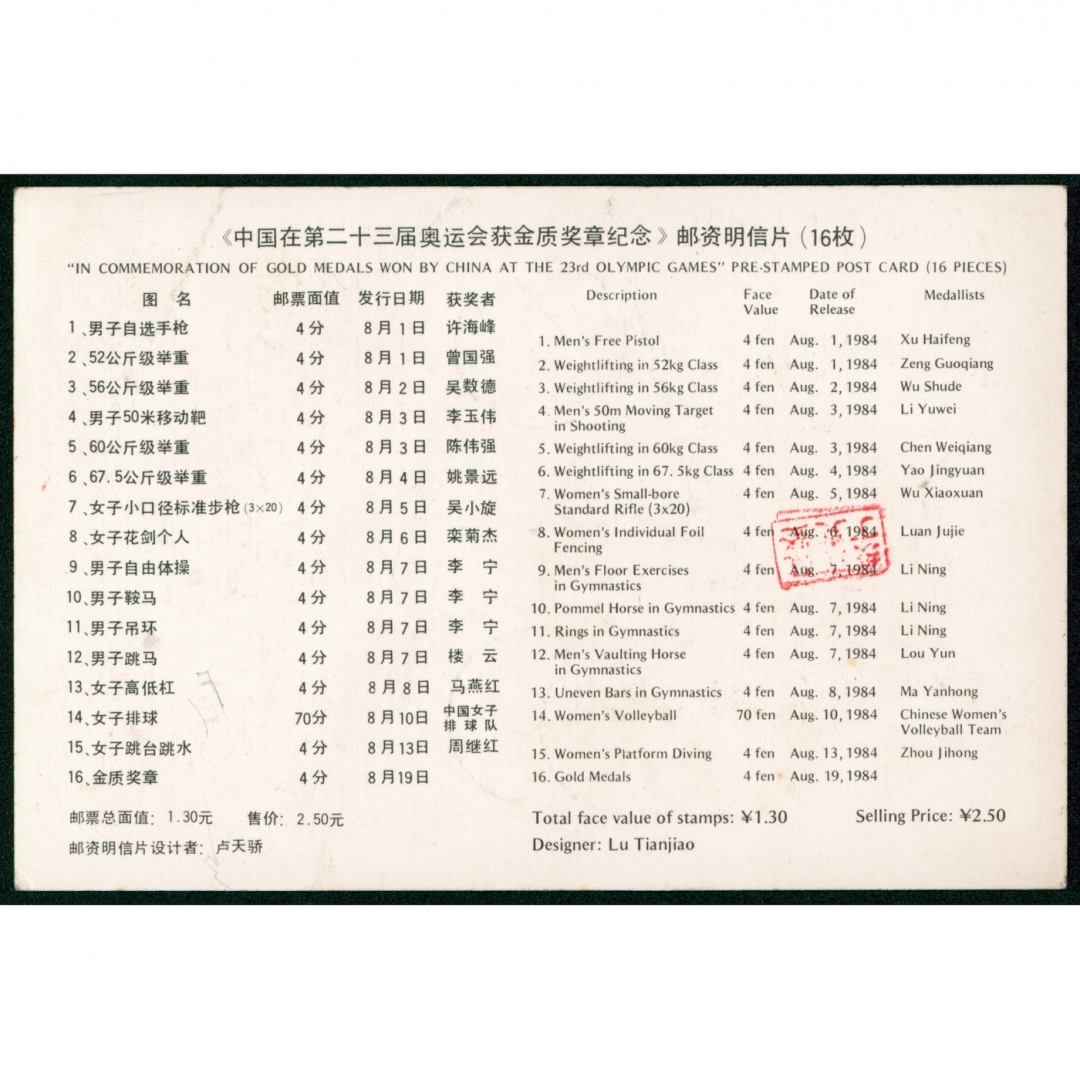 《中国在第二十三届奥运会获金质奖章纪念》邮资明信片(16枚)
"IN COMMEMORATION OF GOLD MEDALS WON BY CHINA AT THE 23rd OLYMPIC GAMES" PRE-STAMPED POST CARD (16 PIECES)
图 名 邮票面值 发行日期 获奖者
1、男子自选手枪 4分 8月1日 许海峰
2、52公斤级举重 4分 8月1日 曾国强
3、56公斤级举重 4分 8月2日 吴数德
4、男子50米移动靶 4分 8月3日 李玉伟
5、60公斤级举重 4分 8月3日 陈伟强
6、67.5公斤级举重 4分 8月4日 姚景远
7、女子小口径标准步枪(3×20) 4分 8月5日 吴小旋
8、女子花剑个人 4分 8月6日 栾菊杰
9、男子自由体操 4分 8月7日 李 宁
10、男子鞍马 4分 8月7日 李 宁
11、男子吊环 4分 8月7日 李 宁
12、男子跳马 4分 8月7日 楼 云
13、女子高低杠 4分 8月8日 马燕红
14、女子排球 70分 8月10日 中国女子
排球队
15、女子跳台跳水 4分 8月13日 周继红
16、金质奖章 4分 8月19日
邮票总面值：1.30元 售价：2.50元
邮资明信片设计者：卢天骄
Description Face Date of Medallists
Value Release
1. Men's Free Pistol 4 fen Aug. 1, 1984 Xu Haifeng
2. Weightlifting in 52kg Class 4 fen Aug. 1, 1984 Zeng Guoqiang
3. Weightlifting in 56kg Class 4 fen Aug. 2, 1984 Wu Shude
4. Men's 50m Moving Target 4 fen Aug. 3, 1984 Li Yuwei
in Shooting
5. Weightlifting in 60kg Class 4 fen Aug. 3, 1984 Chen Weiqiang
6. Weightlifting in 67.5kg Class 4 fen Aug. 4, 1984 Yao Jingyuan
7. Women's Small-bore 4 fen Aug. 5, 1984 Wu Xiaoxuan
Standard Rifle (3x20)
8. Women's Individual Foil 4 fen Aug. 6, 1984 Luan Jujie
Fencing
9. Men's Floor Exercises 4 fen Aug. 7, 1984 Li Ning
in Gymnastics
10. Pommel Horse in Gymnastics 4 fen Aug. 7, 1984 Li Ning
11. Rings in Gymnastics 4 fen Aug. 7, 1984 Li Ning
12. Men's Vaulting Horse 4 fen Aug. 7, 1984 Lou Yun
in Gymnastics
13. Uneven Bars in Gymnastics 4 fen Aug. 8, 1984 Ma Yanhong
14. Women's Volleyball 70 fen Aug. 10, 1984 Chinese Women's
Volleyball Team
15. Women's Platform Diving 4 fen Aug. 13, 1984 Zhou Jihong
16. Gold Medals 4 fen Aug. 19, 1984
Total face value of stamps: ¥1.30 Selling Price: ¥2.50
Designer: Lu Tianjiao